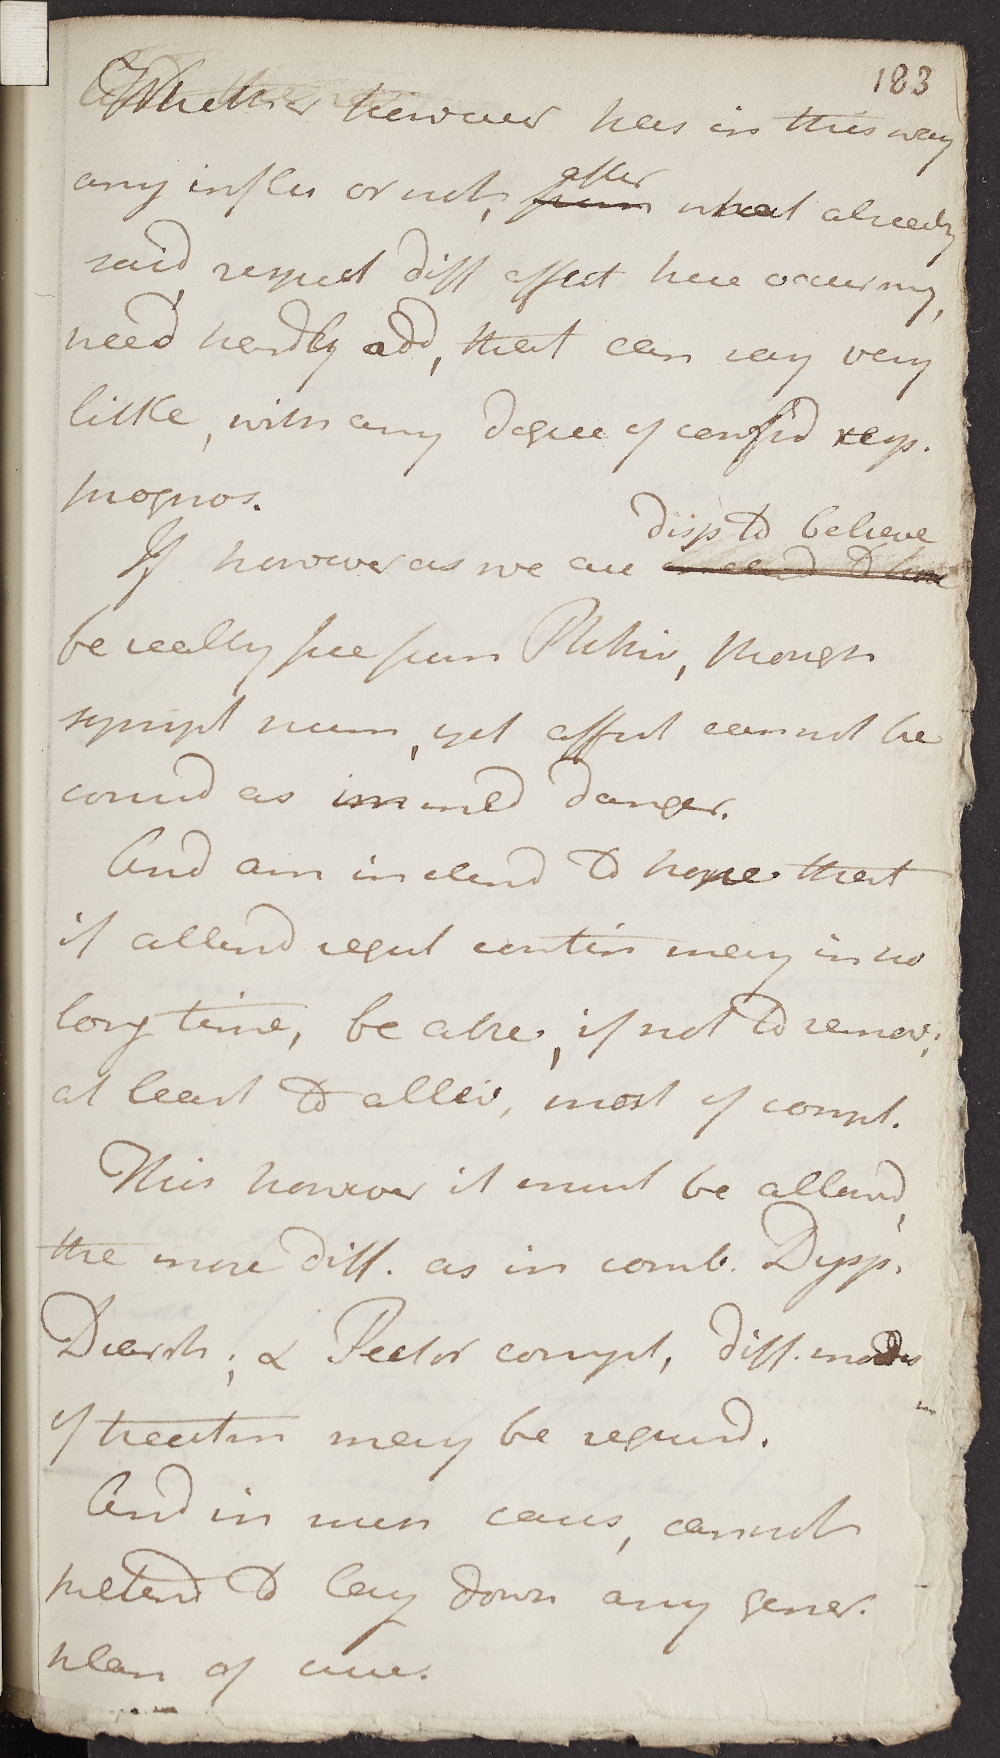 183
Whether however has in this way
any influ or not, after from what already
said, respect diff affect here occurring,
need hardly add, that can say very
little, with any degree of confid resp.
prognos.
If however as we are disp to believe
be really free from Phthis, though
sympt num, yet affect cannot be
consid as immed danger.
And am inclind to hope that
if attend regul contin may in no
long time, be able, if not to remov,
at least to allev, most of compl.
This however it must be allowd,
the more diff. as in comb. Dysp.
Diarrh, & Pector compl, diff. modes
of treatm may be requird.
And in num cases, cannot
pretend to lay down any gener.
plan of cure.